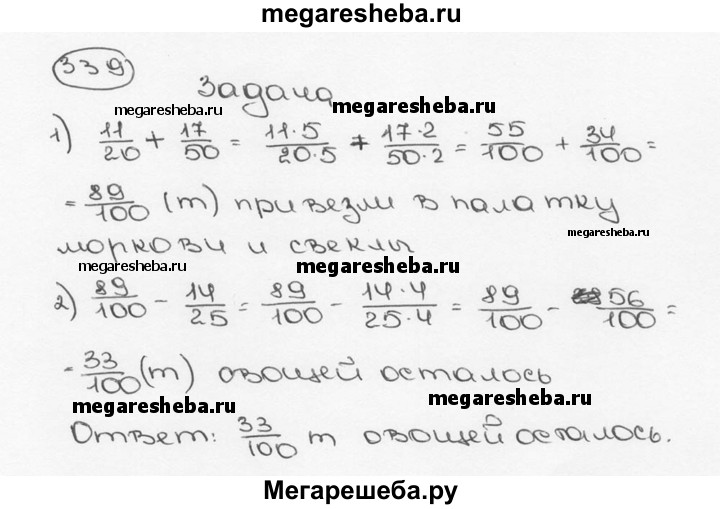 megaresheba.ru
339
Задача
megaresheba.ru
megaresheba.ru
1) 11/20 + 17/50 = 11·5/20·5 + 17·2/50·2 = 55/100 + 34/100 =
= 89/100 (т) привезли в палатку
megaresheba.ru
моркови и свеклы
megaresheba.ru
megaresheba.ru
2) 89/100 - 14/25 = 89/100 - 14·4/25·4 = 89/100 - 56/100 =
= 33/100 (т) овощей осталось
megaresheba.ru
megaresheba.ru
Ответ: 33/100 т овощей осталось.
Мегарешеба.ру